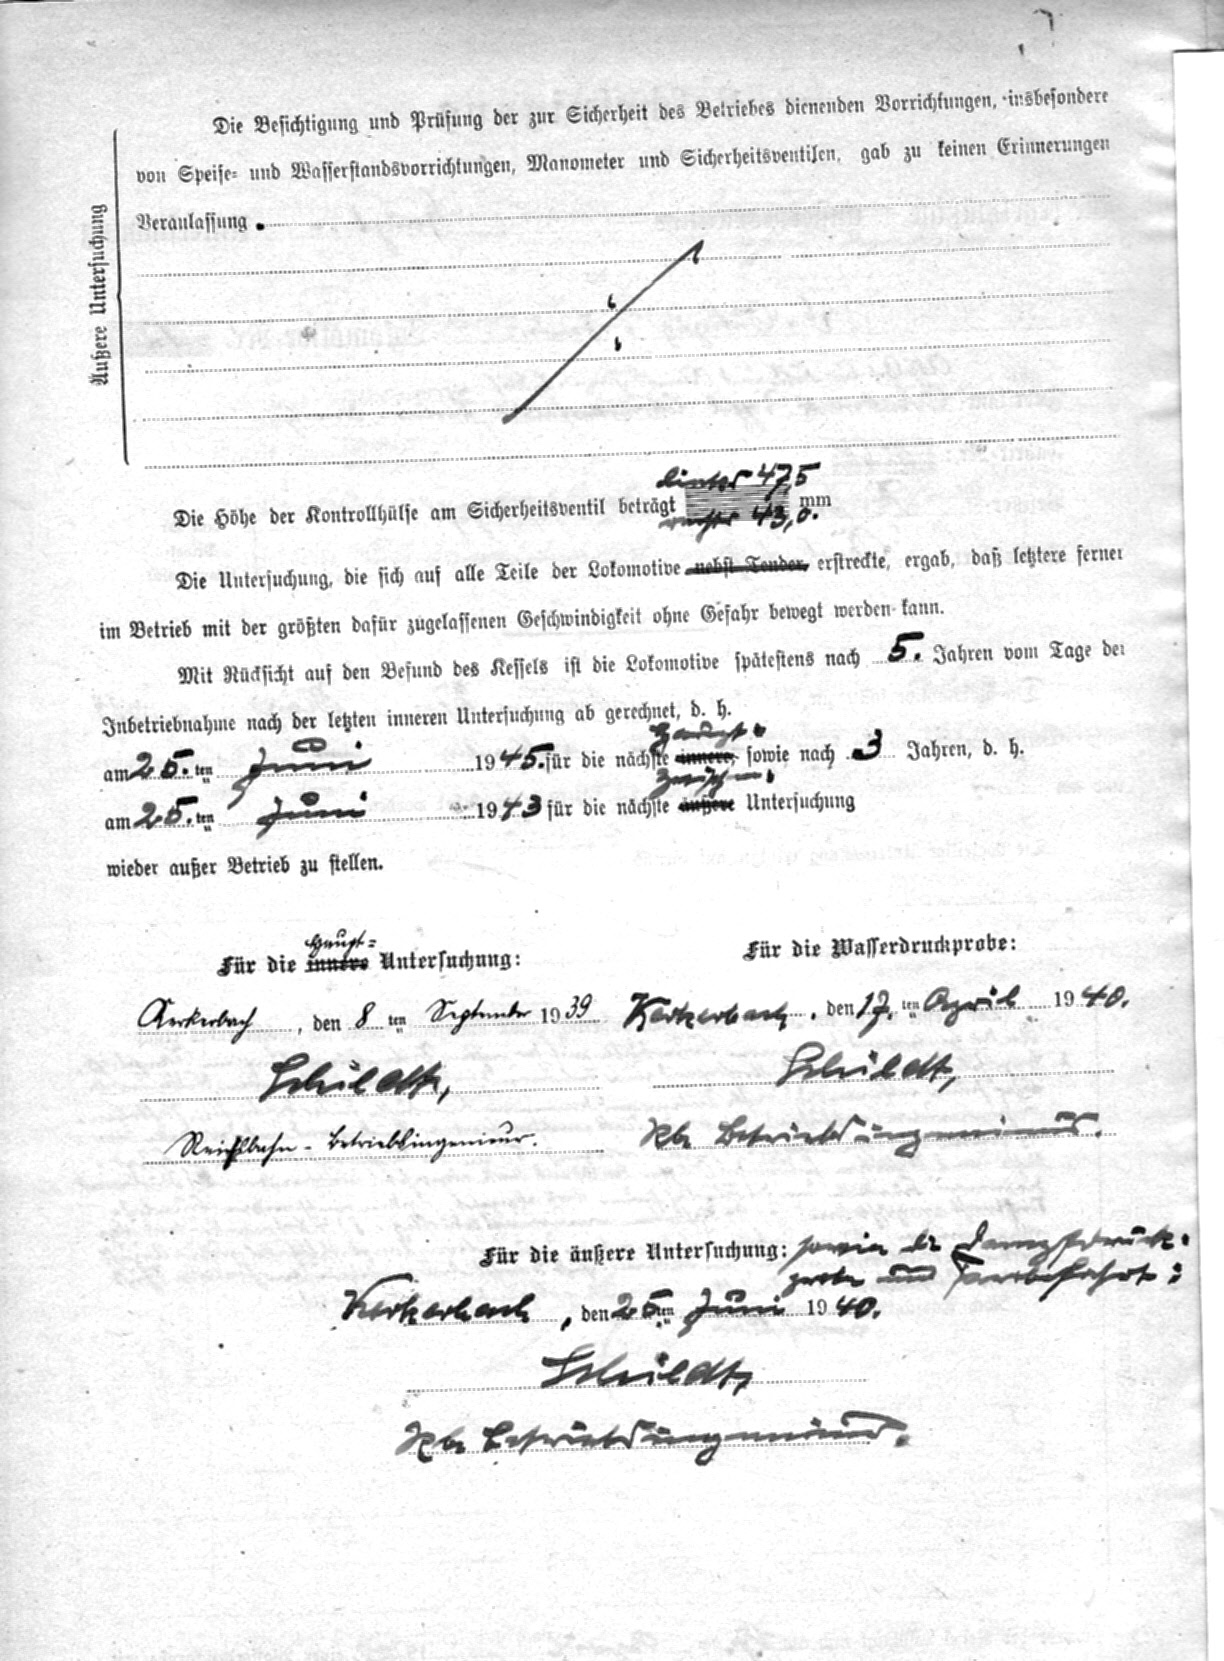 Die Besichtigung und Prüfung der zur Sicherheit des Betriebes dienenden Vorrichtungen, insbesondere
von Speise- und Wasserstandsvorrichtungen, Manometer und Sicherheitsventilen, gab zu keinen Erinnerungen
Veranlassung.
Äußere Untersuchung
links 47,5
Die Höhe der Kontrollhülse am Sicherheitsventil beträgt mm
rechts 43,0.
Die Untersuchung, die sich auf alle Teile der Lokomotive nebst Tender, erstreckte, ergab, daß letztere ferner
im Betrieb mit der größten dafür zugelassenen Geschwindigkeit ohne Gefahr bewegt werden kann.
Mit Rücksicht auf den Befund des Kessels ist die Lokomotive spätestens nach 5. Jahren vom Tage der
Inbetriebnahme nach der letzten inneren Untersuchung ab gerechnet, d. h.
Haupt-
am 25. ten Juni 1945. für die nächste innere, sowie nach 3 Jahren, d. h.
Zwischen-
am 25. ten Juni 1943 für die nächste äußere Untersuchung
wieder außer Betrieb zu stellen.
Haupt-
Für die innere Untersuchung:
Kerkerbach, den 8 ten September 1939
Schildt,
Reichsbahn-Betriebsingenieur.
Für die Wasserdruckprobe:
Kerkerbach, den 17. ten April 1940.
Schildt,
Rb Betriebsingenieur.
Für die äußere Untersuchung: sowie die Dampfdruck-
probe und Probefahrt:
Kerkerbach, den 25 ten Juni 1940.
Schildt,
Rb Betriebsingenieur.